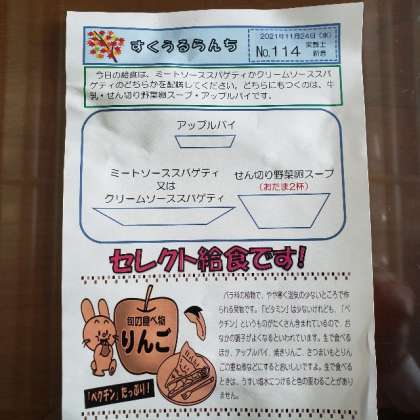 すくうるらんち
2021年11月24日(水)
No.114
栄養士
今日の給食は、ミートソーススパゲティかクリームソーススパ
ゲティのどちらかを配膳してください。どちらにもつくのは、牛
乳・せん切り野菜卵スープ・アップルパイです。
アップルパイ
ミートソーススパゲティ
又は
クリームソーススパゲティ
せん切り野菜卵スープ
(おたま2杯)
セレクト給食です!
旬の食べ物
りんご
「ペクチン」たっぷり!
バラ科の植物で、やや寒く湿気の少ないところで作
られる果物です。「ビタミン」は少ないけれども、「ペ
クチン」というものがたくさん含まれているので、お
なかの調子がよくなるといわれています。生で食べる
ほか、アップルパイ、焼きりんご、さつまいもとりん
ごの重ね煮などにするとおいしいですよ。生で食べる
ときは、うすい塩水につけると色の変わることがあり
ません。